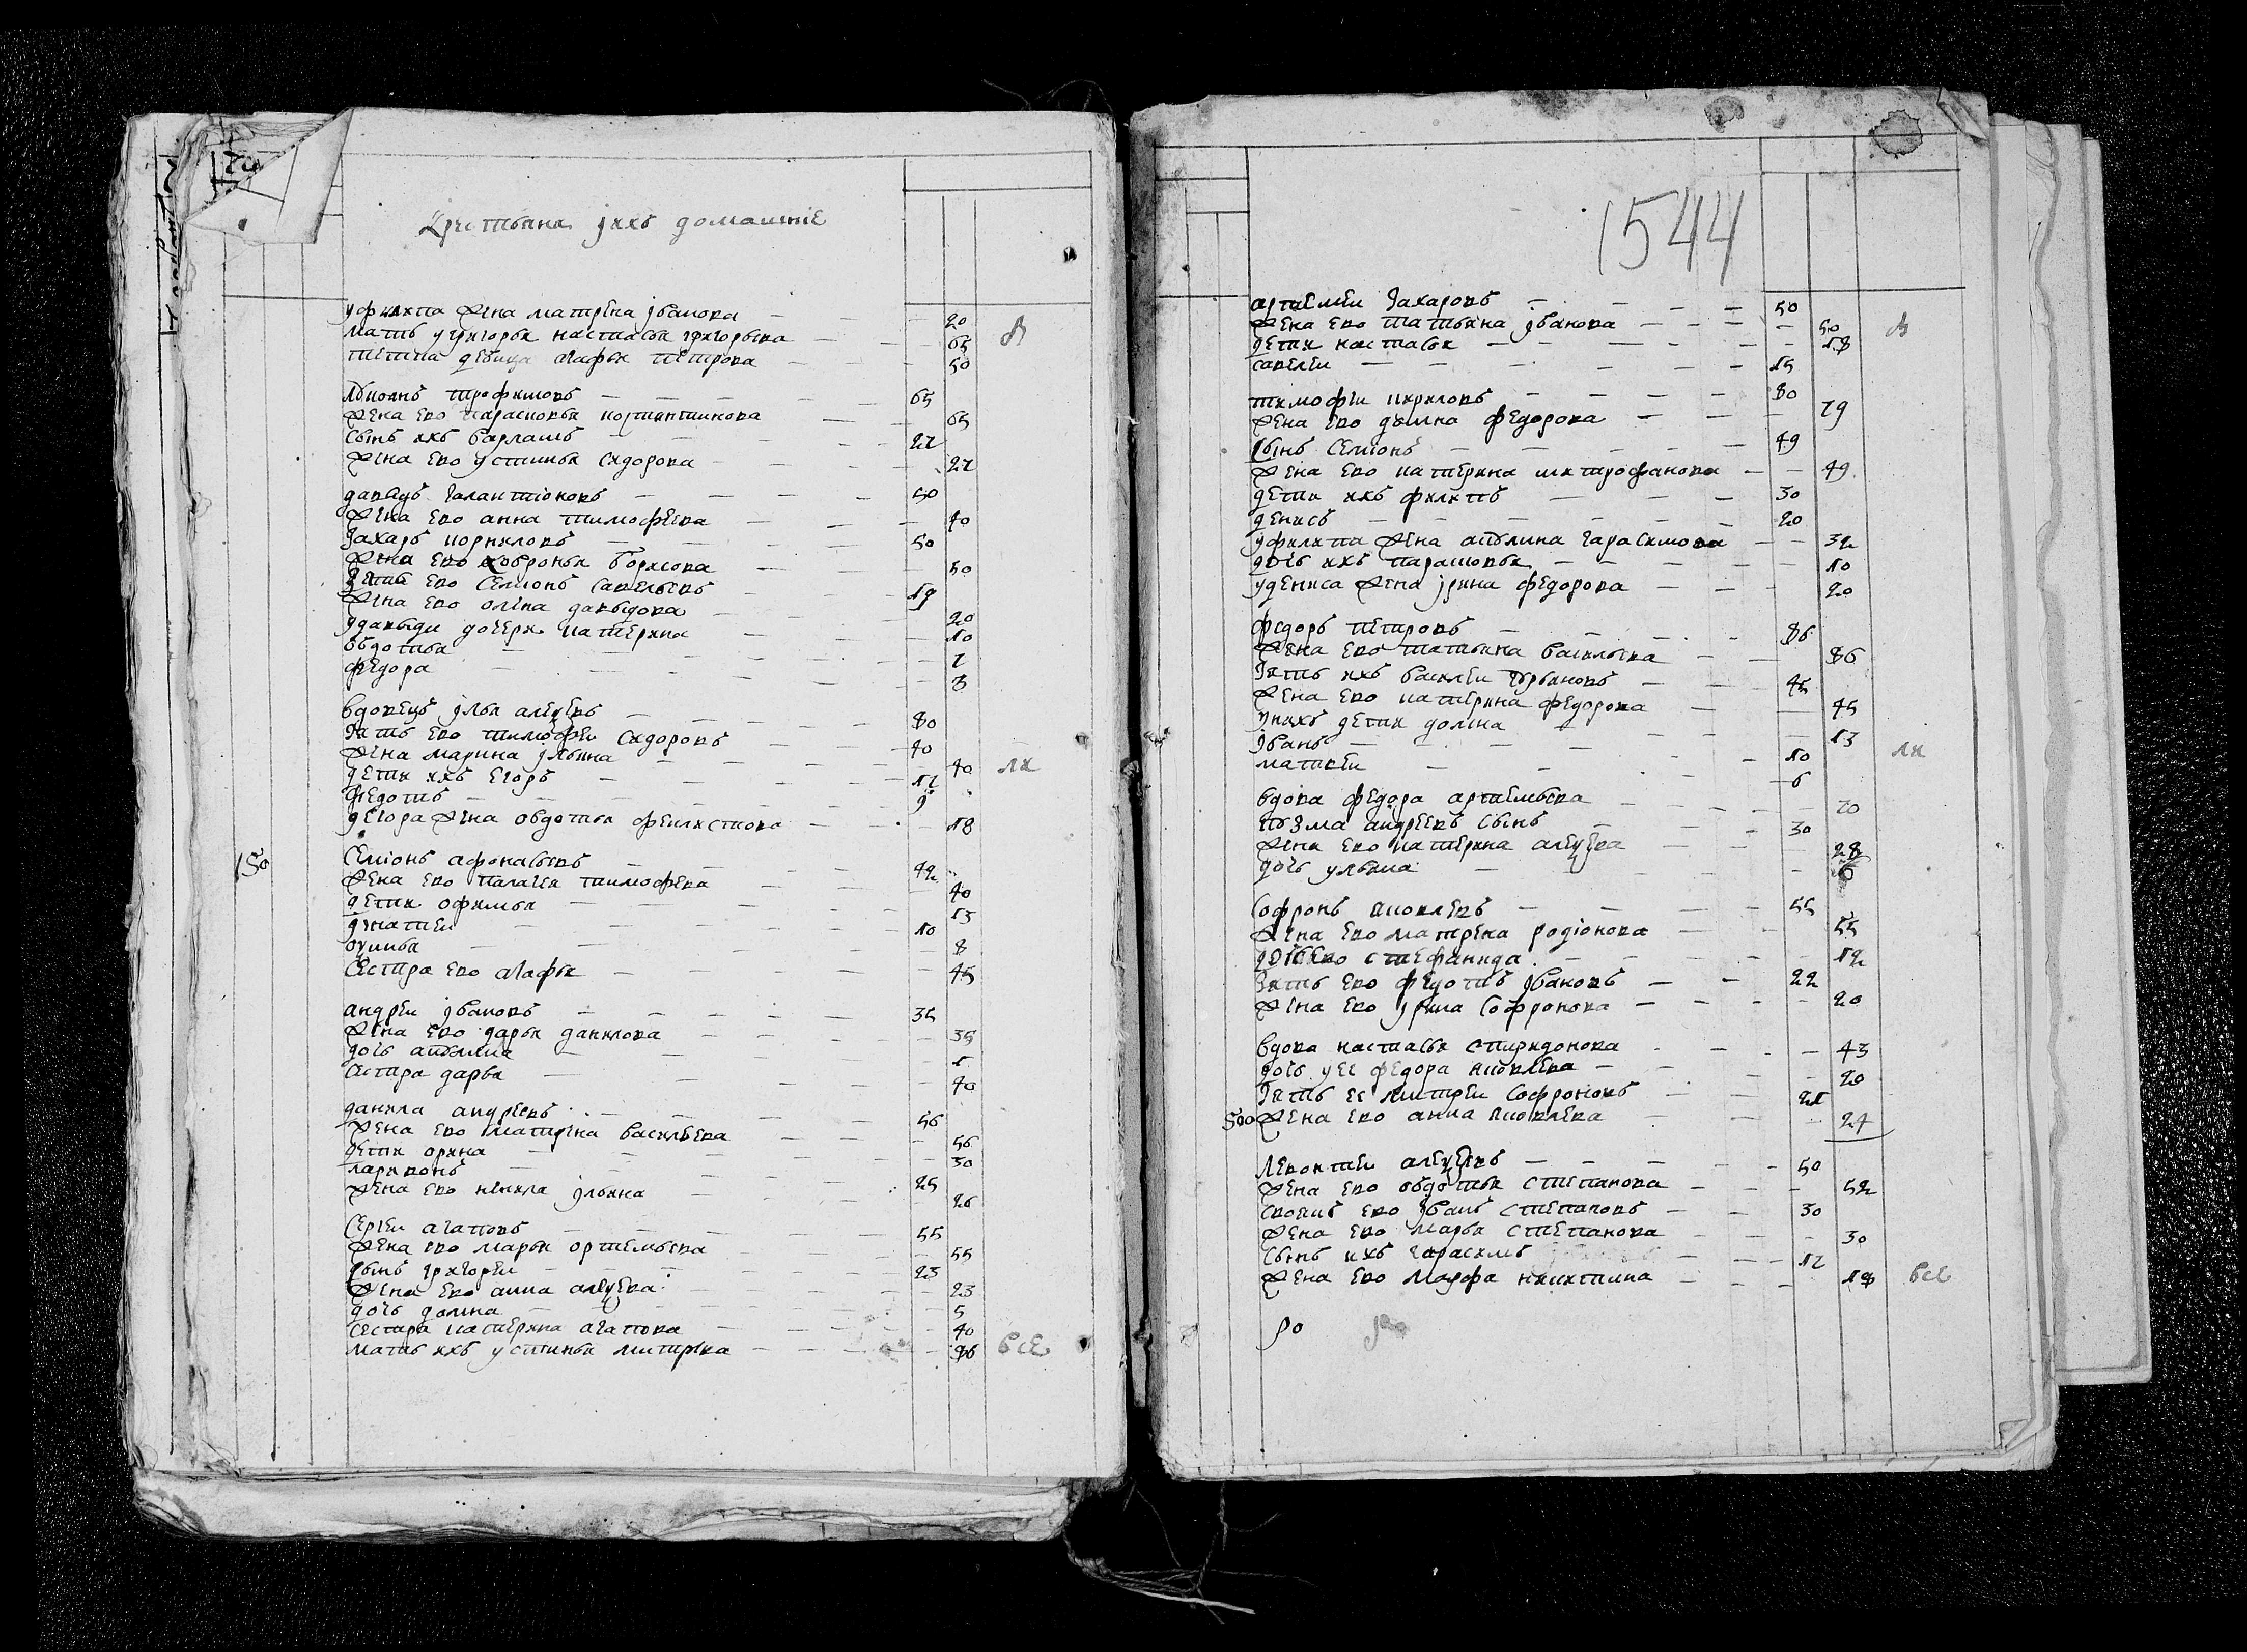 крестьяня ихъ домашние
уфилата жена матрена иванова 20
мать у григорья настасья григорьева 65
тетка девица агафья петрова 50
лукоянъ трофимовъ 65
жена ево парасковья костентинова 65
сынъ ихъ варламъ 27
жена ево устинья сидорова 27
давыдъ галантионовъ 50
жена ево анна тимофеева 40
захаръ корниловъ 50
жена ево ховронья борисова 50
зять ево семионъ савельевъ 19
жена ево олена давыдова 20
у давыда дочери катерина 10
овдотья 7
федора 3
вдовецъ илья алексеевъ 80
зять ево тимофеи сидоровъ 40
жена марина ильина 40
дети ихъ егоръ 17
федотъ 9
у егора жена овдотья феилистова 18
150
семионъ афонасьевъ 42
жена ево палагея тимофеева 40
дети офимья 13
игнатеи 10
8
сестра ево агафья 45
андреи ивановъ 35
жена ево дарья данилова 35
дочь акулина
сестра дарья 40
данила андреевъ 56
жена ево матрена васильева 56
дети орина 30
ларивонъ 25
жена ево ненила ильина 26
сергеи агаповъ 55
жена ево марья ортемьева 55
сынъ григореи 23
жена ево анна алексеева 23
дочь домна 5
сестра катерина агапова 40
мать ихъ устинья митрева
все
1544
артемеи захаровъ 50
жена ево татьяна иванова 50
дети настасья 18
савелеи 15
тимофеи кириловъ 80
жена ево домна федорова 79
сынъ семионъ 49
жена ево катерина митрофанова 49
дети ихъ филатъ 30
денисъ 20
у филата жена акулина гарасимова 32
дочь ихъ парасковья 10
у дениса жена ирина федорова 20
федоръ петровъ 86
жена ево татьяна васильева 86
зять ихъ василеи 45
жена ево катерина федорова 45
у нихъ дети домна 13
иванъ 10
матвеи 6
вдова федора артемьева 70
кузма андреевъ сынъ 30
жена ево катерина алексеева 28
дочь ульяна
софронъ яковлевъ 55
жена ево матрена родионова 55
дочь ево стефанида 12
зять ево федотъ ивановъ 22
жена ево ирина софронова 20
вдова настасья спиридонова 43
дочь у ее федора яковлева 20
зять ее митреи софроновъ 21
500 жена ево анна яковлева 24
левонтеи алексеевъ 50
жена ево овдотья степанова 52
своякъ ево иванъ степановъ 30
жена ево марья степанова 30
сынъ ихъ гарасимъ 17
жена ево марфа никитина 18
все